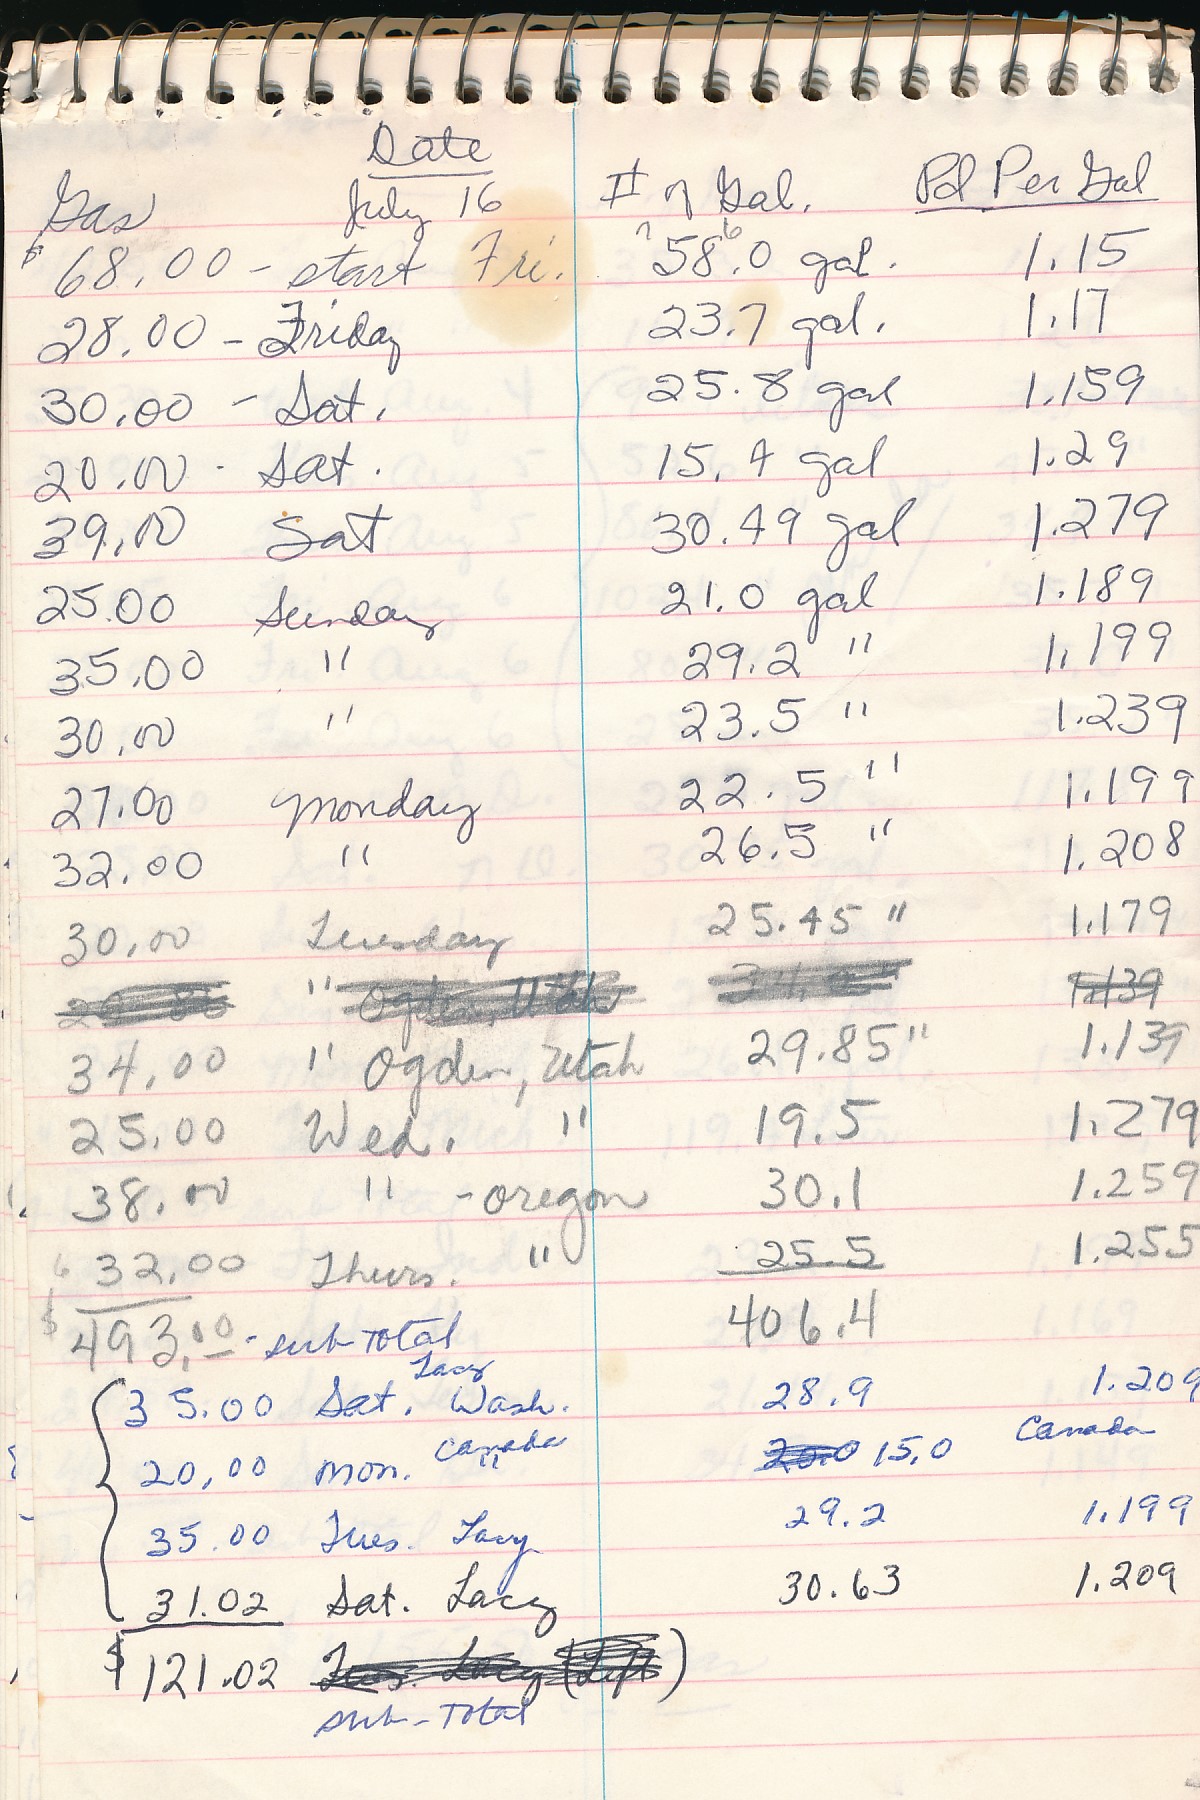 Date
Gas July 16 # of Gal. Pd Per Gal
$ 68.00 - start Fri. ? 58.0 6 gal. 1.15
28.00 - Friday 23.7 gal. 1.17
30.00 - Sat. 25.8 gal 1.159
20.00 - Sat. 15.4 gal 1.29
39.00 Sat 30.49 gal 1.279
25.00 Sunday 21.0 gal 1.189
35.00 " 29.2 " 1.199
30.00 " 23.5 " 1.239
27.00 Monday 22.5 " 1.199
32.00 " 26.5 " 1.208
30.00 Tuesday 25.45 " 1.179
" Ogden, Utah 1.139
34.00 " Ogden, Utah 29.85 " 1.139
25.00 Wed. " 19.5 1.279
38.00 " - Oregon 30.1 1.259
32.00 Thurs. " 25.5 1.255
$ 493.00 - sub Total 406.4
35.00 Sat. Lacy Wash. 28.9 1.209
20,00 Mon. Canada " 15.0 Canada
35.00 Tues. Lacy 29.2 1.199
31.02 Sat. Lacey 30.63 1.209
$ 121.02 Tues. Lacy (Left)
sub-Total